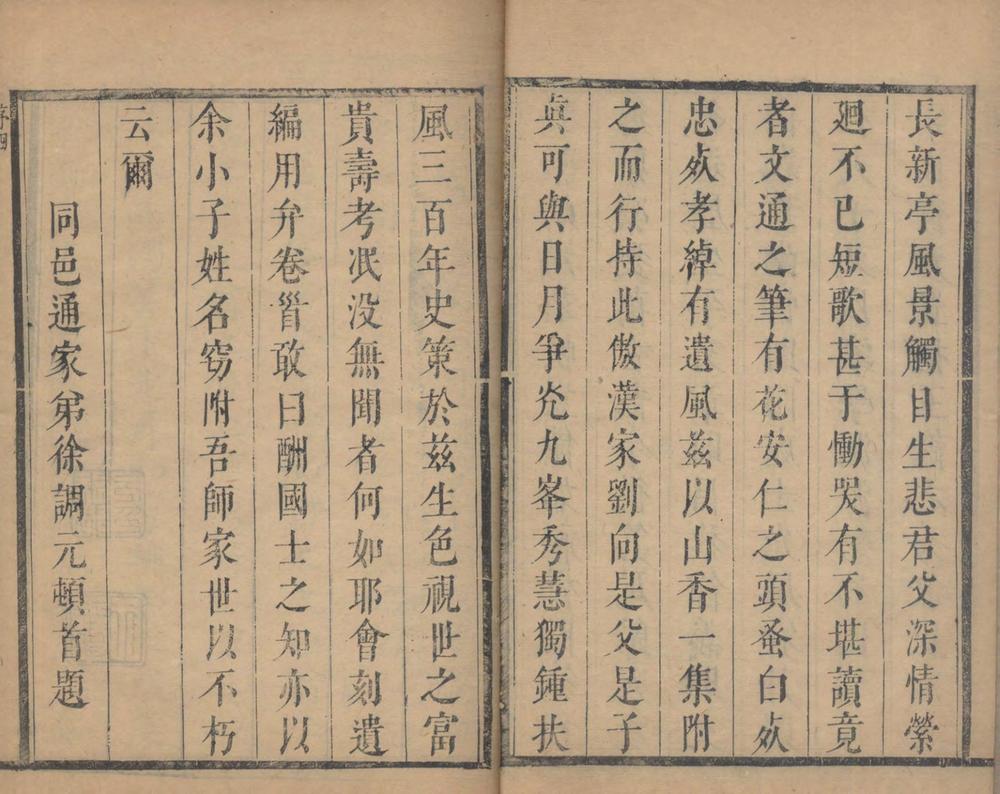 長新亭風景觸目生悲君父深情縈
廻不已短歌甚于慟哭有不堪讀竟
者文通之筆有花安仁之頭蚤白㱙
忠㱙孝綽有遺風茲以山香一集附
之而行持此傲漢家劉向是父是子
眞可與日月爭光九峯秀慧獨鍾扶
風三百年史策於茲生色視世之富
貴壽考泯沒無聞者何如耶會刻遺
編用弁卷首敢曰酬國士之知亦以
余小子姓名窃附吾師家世以不朽
云爾
同邑通家弟徐調元頓首題
序四